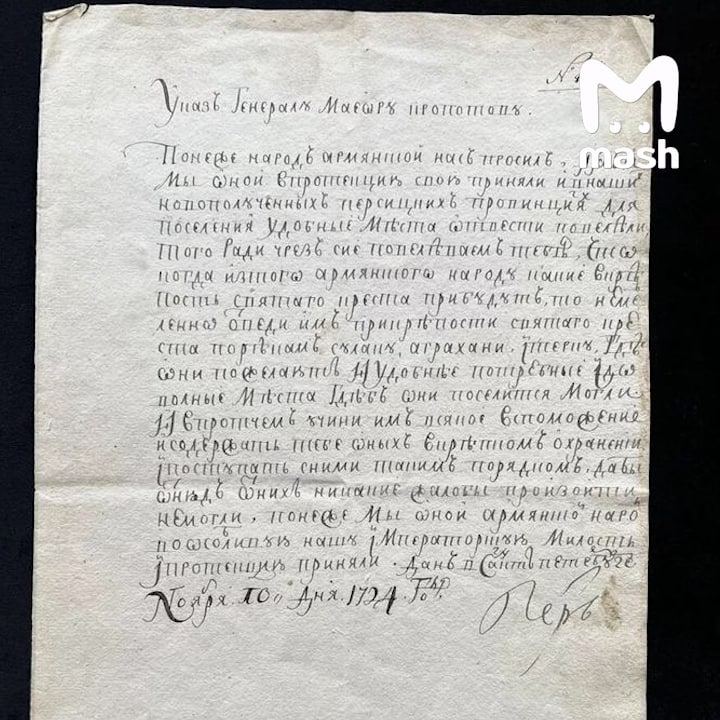 №
mash
Указъ Генералу Маеѡру кропотову.
Понеже народъ армянской насъ просилъ,
Мы ѡной впротекцию свою приняли
новополученных персицких провинциях для
поселения Удобные Мѣста ѡтвести повелѣли
Того Ради чрезъ сие повелѣваемъ тебѣ,
когда изтого армянского народу какие вкрѣ
пость святаго креста прибудутъ, то неме
ленно ѿведи имъ прикрѣпости святаго кре
ста порѣкам сулаку, аграхани, ї терку, гдѣ
ѡни пожелаютъ И Удобные потребные
волные Мѣста гдѣбъ ѡни поселится Могли
И впротчемъ учини им всякое вспоможение
исодержать тебе ѡных вкрѣпком охранении
їпоступать сними таким порядком, дабы
ѿнюдъ ѿних никакие жалобы произойти
немогли, понеже Мы ѡной армянской народ
воѡсобливую нашу їМператорскую Милость
їпротекцию приняли. Данъ в Санктъпетербурге
Ноября 10 Дня 1724 Году
Петръ